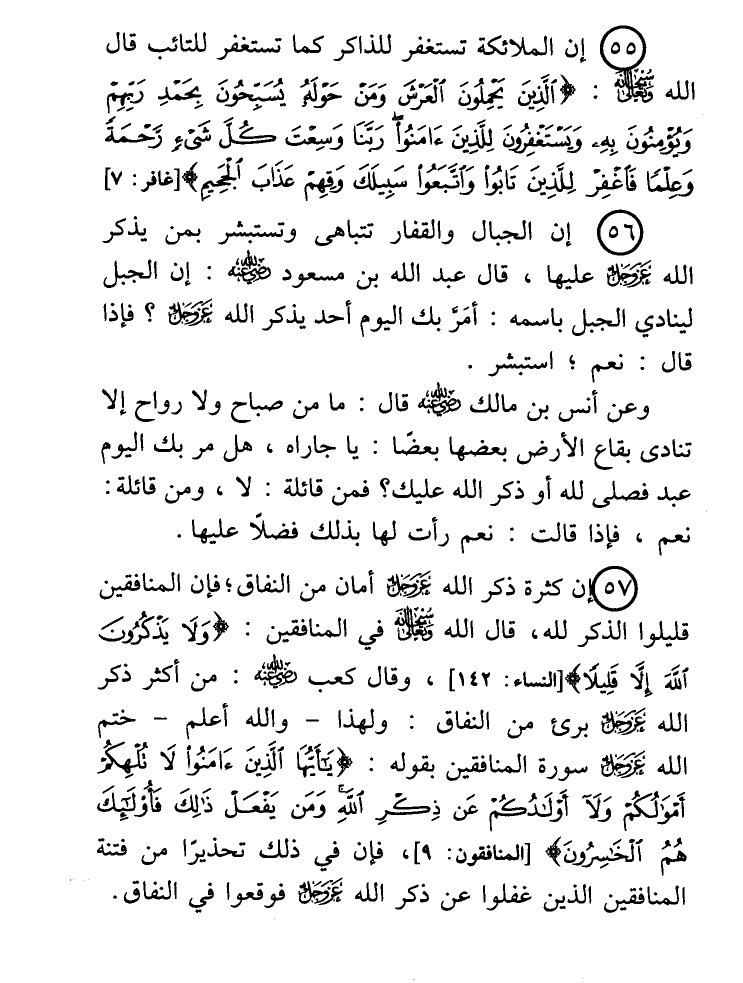 ٥٥ إن الملائكة تستغفر للذاكر كما تستغفر للتائب قال
الله سبحانه وتعالى : ﴿ٱلَّذِينَ يَحْمِلُونَ ٱلْعَرْشَ وَمَنْ حَوْلَهُۥ يُسَبِّحُونَ بِحَمْدِ رَبِّهِمْ
وَيُؤْمِنُونَ بِهِۦ وَيَسْتَغْفِرُونَ لِلَّذِينَ ءَامَنُوا۟ۖ رَبَّنَا وَسِعْتَ كُلَّ شَىْءٍ رَّحْمَةً
وَعِلْمًا فَٱغْفِرْ لِلَّذِينَ تَابُوا۟ وَٱتَّبَعُوا۟ سَبِيلَكَ وَقِهِمْ عَذَابَ ٱلْجَحِيمِ﴾[غافر: ٧]
٥٦ إن الجبال والقفار تتباهى وتستبشر بمن يذكر
الله عَزَّوَجَلَّ عليها ، قال عبد الله بن مسعود رضي الله عنه : إن الجبل
لينادي الجبل باسمه : أمَرَّ بك اليوم أحد يذكر الله عَزَّوَجَلَّ ؟ فإذا
قال : نعم ؛ استبشر .
وعن أنس بن مالك رضي الله عنه قال : ما من صباح ولا رواح إلا
تنادى بقاع الأرض بعضها بعضًا : يا جاراه ، هل مر بك اليوم
عبد فصلى لله أو ذكر الله عليك؟ فمن قائلة : لا ، ومن قائلة:
نعم ، فإذا قالت : نعم رأت لها بذلك فضلًا عليها.
٥٧ إن كثرة ذكر الله عَزَّوَجَلَّ أمان من النفاق؛ فإن المنافقين
قليلوا الذكر لله، قال الله سبحانه وتعالى في المنافقين : ﴿وَلَا يَذْكُرُونَ
ٱللَّهَ إِلَّا قَلِيلًا﴾[النساء: ١٤٢] ، وقال كعب رضي الله عنه : من أكثر ذكر
الله عَزَّوَجَلَّ برئ من النفاق : ولهذا – والله أعلم – ختم
الله عَزَّوَجَلَّ سورة المنافقين بقوله : ﴿يَـٰٓأَيُّهَا ٱلَّذِينَ ءَامَنُوا۟ لَا تُلْهِكُمْ
أَمْوَٰلُكُمْ وَلَآ أَوْلَـٰدُكُمْ عَن ذِكْرِ ٱللَّهِۚ وَمَن يَفْعَلْ ذَٰلِكَ فَأُو۟لَـٰٓئِكَ
هُمُ ٱلْخَـٰسِرُونَ﴾ [المنافقون: ٩]، فإن في ذلك تحذيرًا من فتنة
المنافقين الذين غفلوا عن ذكر الله عَزَّوَجَلَّ فوقعوا في النفاق.